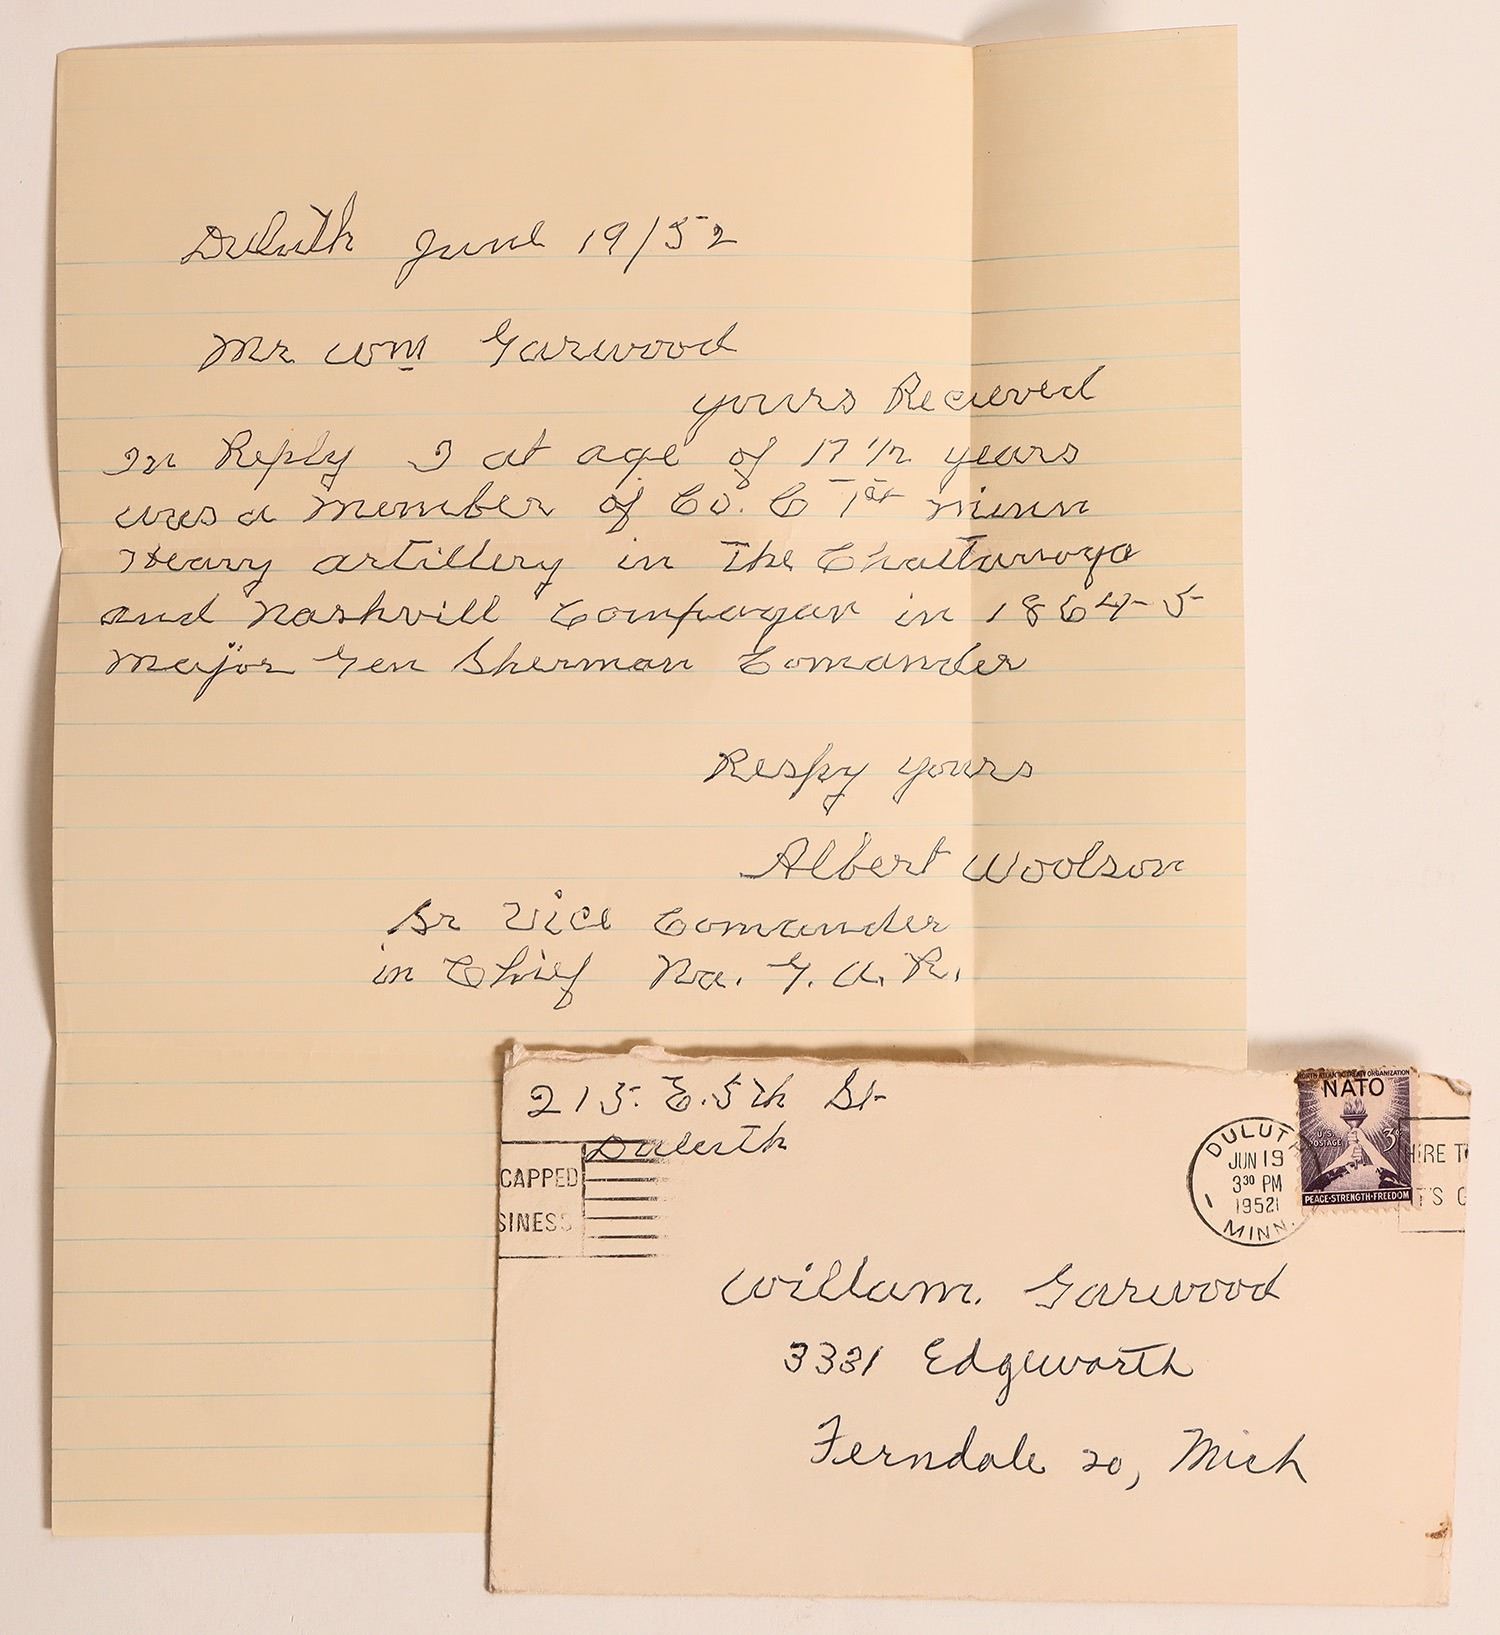 Duluth June 19/52
Mr Wm Garwood
yours Recieved
In Reply I at age of 17 1/2 years
was a member of Co. C 1st minn
Heavy artillery in The Chattanoga
and Nashvill Compagan in 1864-5
Major Gen Sherman Comander
Respy yours
Albert Woolson
Sr Vice Comander
in Chief Na. G. A. R.
215. E. 5th St
Duluth
CAPPED
SINESS
DULUTH
JUN 19
3 30 PM
1952
MINN.
NORTH ATLANTIC TREATY ORGANIZATION
NATO
U.S. POSTAGE
3¢
PEACE-STRENGTH-FREEDOM
HIRE T
T'S G
Willam. Garwood
3331 Edgeworth
Ferndale 20, Mich